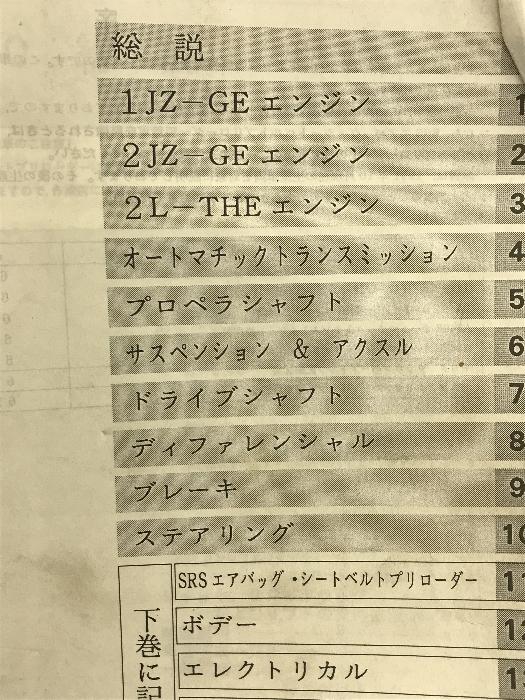 総 説
1JZ－GE エンジン 1
2JZ－GE エンジン 2
2L－THE エンジン 3
オートマチックトランスミッション 4
プロペラシャフト 5
サスペンション ＆ アクスル 6
ドライブシャフト 7
ディファレンシャル 8
ブレーキ 9
ステアリング 10
SRSエアバッグ・シートベルトプリローダー 11
ボデー
エレクトリカル
下巻に記